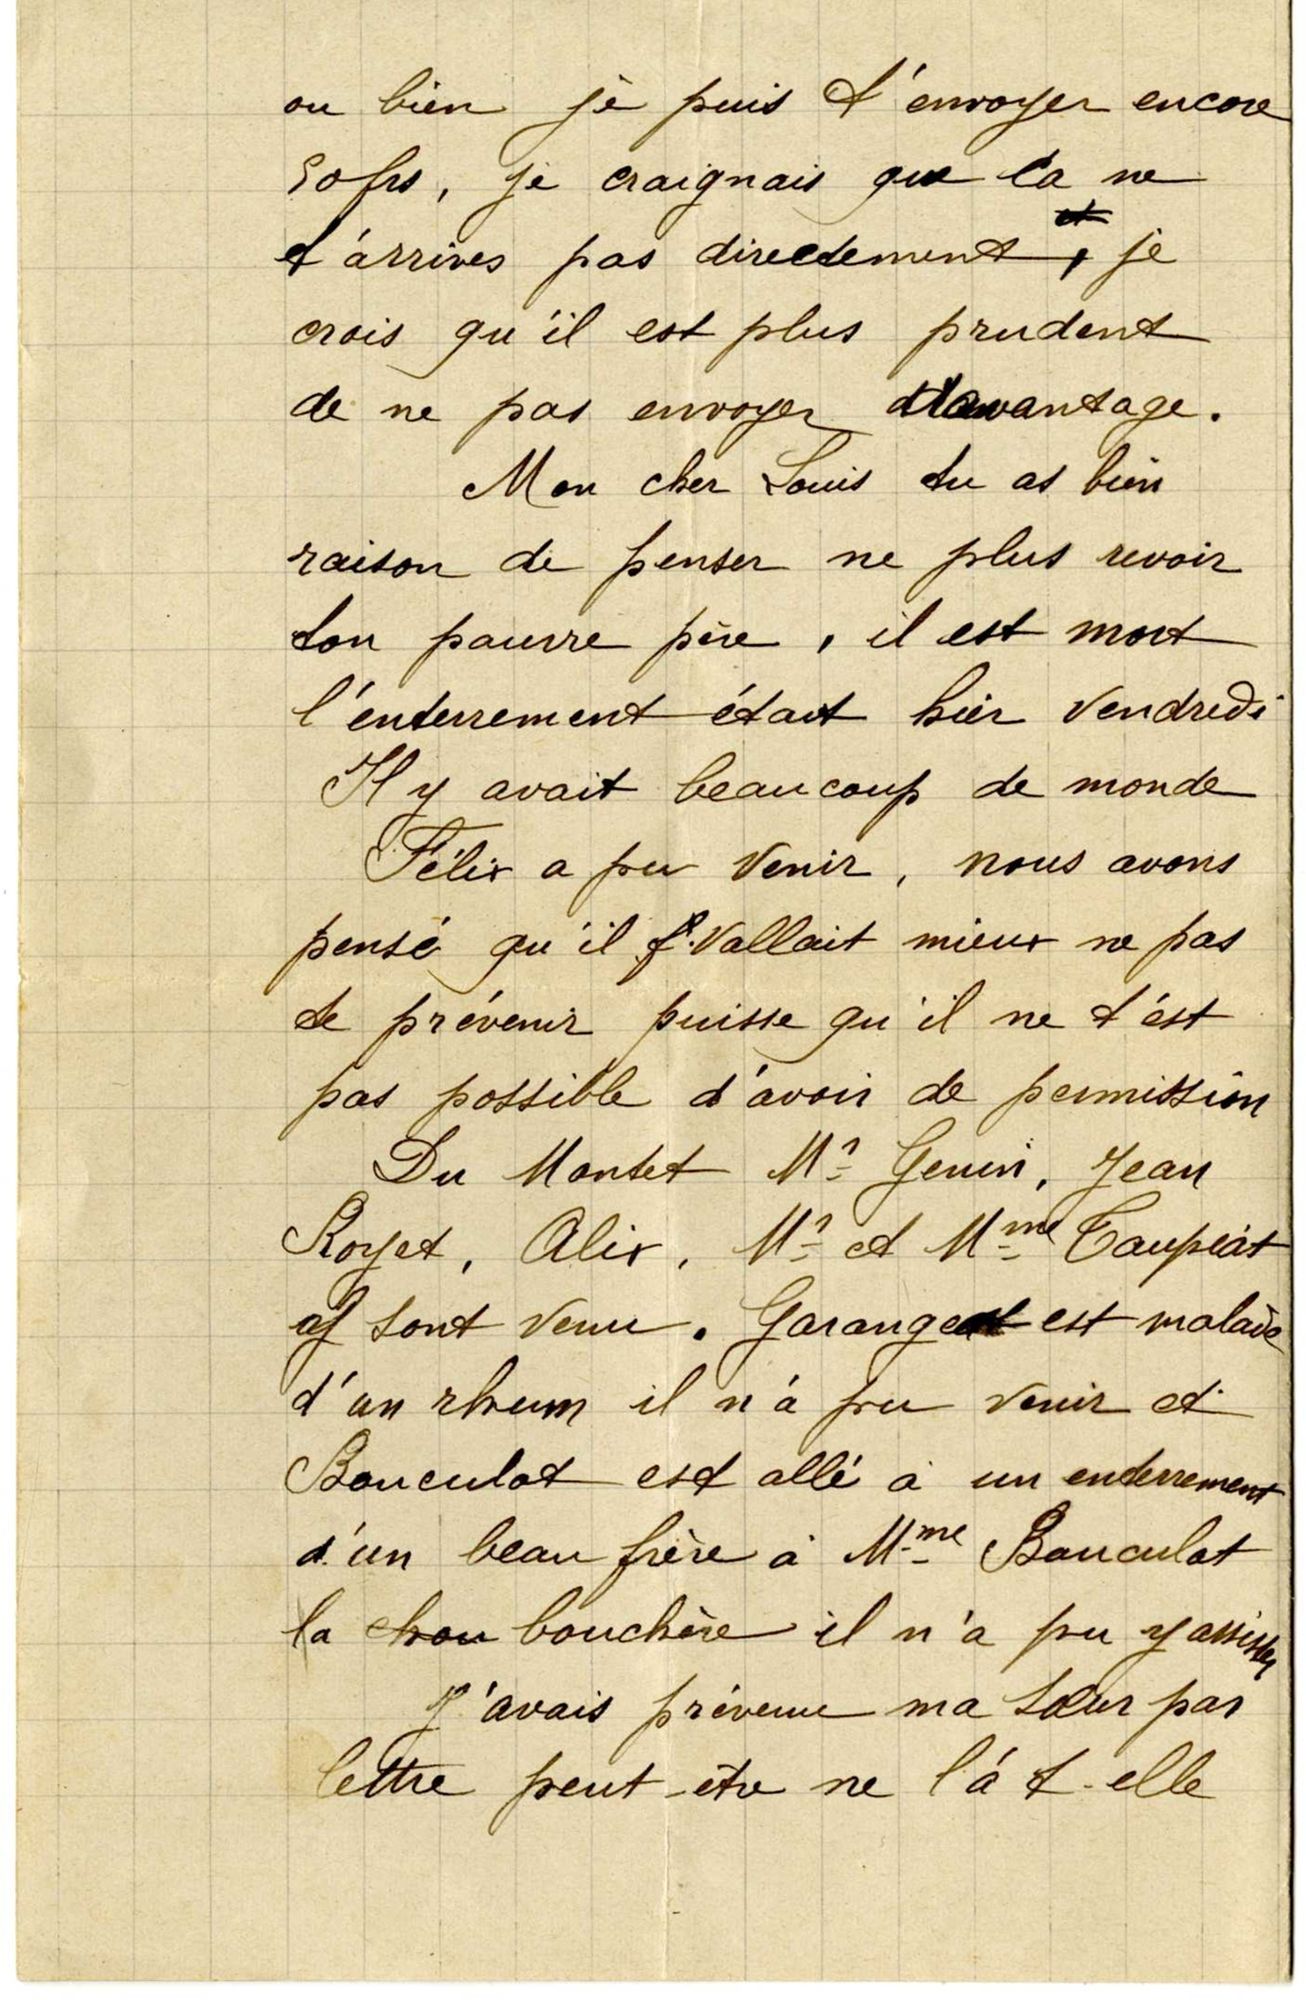 ou bien je puis t'envoyer encore
50 frs, je craignais que ca ne
t'arrives pas directement, je
crois qu'il est plus prudent
de ne pas envoyer davantage.
Mon cher Louis tu as bien
raison de penser ne plus revoir
ton pauvre père, il est mort
l'enterrement était hier Vendredi
Il y avait beaucoup de monde
Félix a pu venir, nous avons
pensé qu'il vallait mieux ne pas
te prévenir puisse qu'il ne t'est
pas possible d'avoir de permission
Du Montet Mr Genin, Jean
Royet, Alix, Mr et Mme Taupeat
y sont venu. Garangeat est malade
d'un rhum il n'a pu venir et
Bouculat est allé à un enterrement
d'un beau frère à Mme Bouculat
la chou bouchère il n'a pu y assister
J'avais prévenue ma sœur par
lettre peut-être ne l'a t-elle